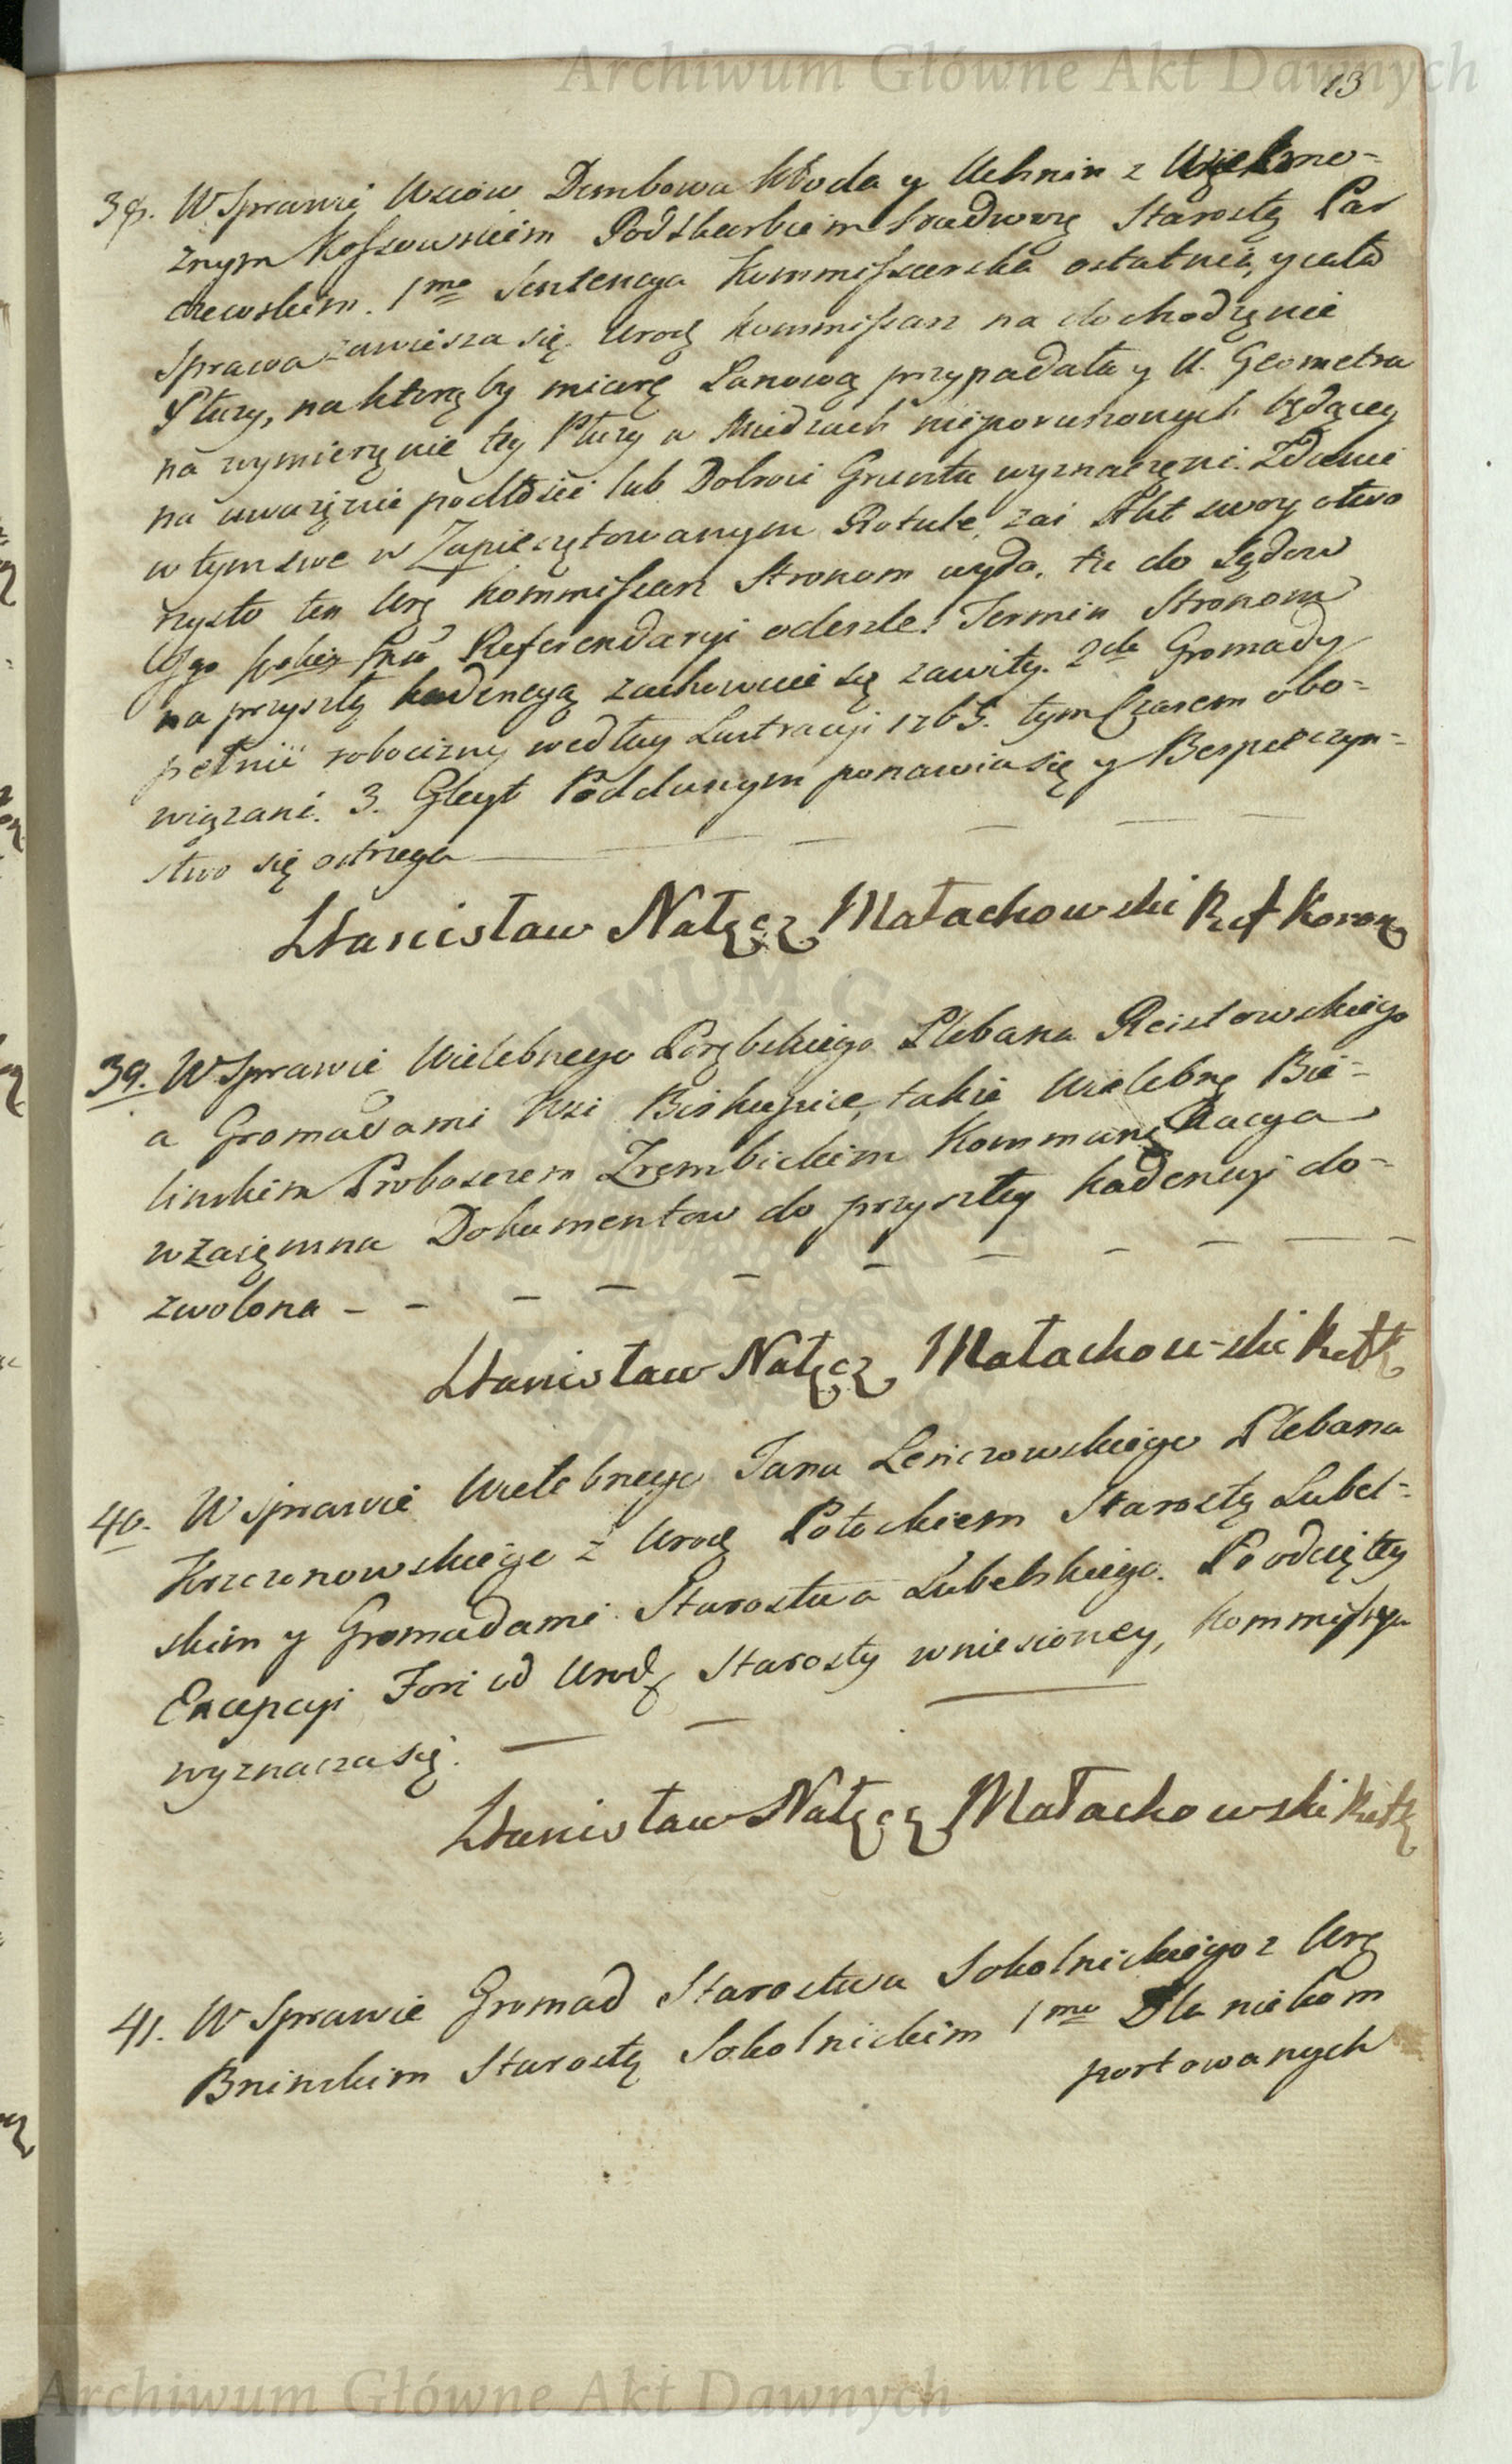 Archiwum Główne Akt Dawnych
13
38. W Sprawie Wsiow Dembowa Kłoda y Uchnin z Wielmo-
żnym Kossowskim Podskarbim Nadwor Starostą Par
czewskim. 1mo Sentencya Kommissarska ostatnia, y cała
Sprawa zawiesza się. Urodz Kommissarz na dochodzęnie
Płuzy, na którąby miarę Łanową przypadała y U. Geometra
na wymierzęnie tey Płuzy w Miedzach nieporuszonych będącey
na uważęnie podłości lub Dobroci Gruntu wyznaczęni. Zdanie
w tym swe w Zapieczętowanym Rotule, zaś Akt swoy otwo
rzysto ten Urz Kommissarz Stronom wyda, tu do Sądow
Referendaryi odeszle. Termin Stronom
na przyszłą kadencyą zachowuie się zawity. 2do Gromady
pełnić robocizny według Lustracyi 1765. tym Czasem obo-
wiązani. 3. Gleyt Poddanym ponawia się y Bespieczyn-
stwo się ostrzega
Stanisław Nałęcz Małachowski Ref Koron
39. W Sprawie Wielebnego Porębskiego Plebana Reistowskiego
a Gromadami Wsi Biskupice, także Wielebnę Bie-
linskim Proboszczem Zrembickim Kommunikacya
wzaięmna Dokumentow do przyszłey kadencyi do-
zwolona
Stanisław Nałęcz Małachowski RefK
40. W Sprawie Wielebnego Jana Lenczowskiego Plebana
Krzczonowskiego z Urodz Potockiem Starostą Lubel-
skim y Gromadami Starostwa Lubelskiego. Po odciętey
Excepcyi Fori od Urodz Starosty wniesioney, Kommissya
wyznacza się.
Stanisław Nałęcz Małachowski RefK
41. W Sprawie Gromad Starostwa Sokolnickiego z Urz
Bninskim Starostą Sokolnickim 1mo Dla niekom
portowanych
Archiwum Główne Akt Dawnych